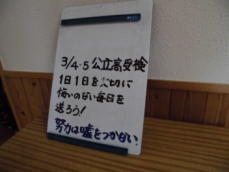 3/4・5 公立高受検
1日1日を大切に
悔いのない毎日を
送ろう!
努力は嘘をつかない.